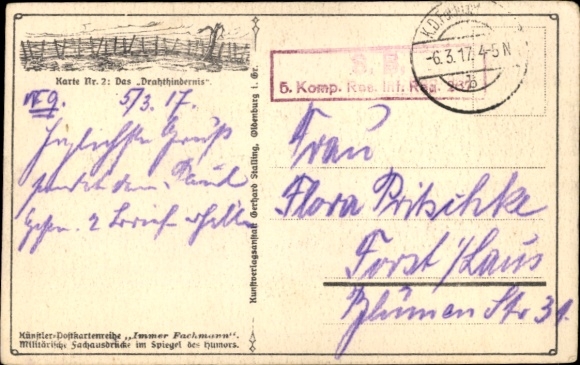 Karte Nr. 2: Das „Drahthindernis“.
5/3. 17.
Herzlichste Grüße
sendet dein Paul
2 Brief erhalten
Künstler-Postkartenreihe „Immer Fachmann“.
Militärische Fachausdrücke im Spiegel des Humors.
Kunstverlagsanstalt Gerhard Stalling, Oldenburg i. Gr.
S. B.
5. Komp. Res. Inf. Reg.
-6.3.17. 4-5 N
Frau
Flora Pritschke
Forst i/Laus
Blumen Str 31.